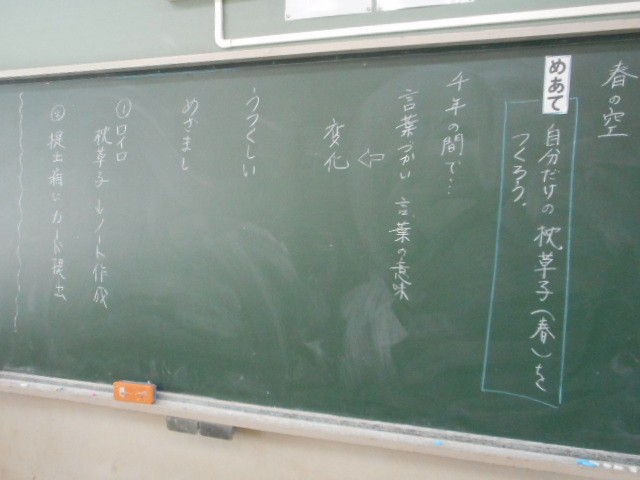 春の空
めあて
自分だけの枕草子(春)を
つくろう。
千年の間で…
言葉づかい 言葉の意味
⇦
変化
うつくしい
めざまし
①ロイロ
枕草子 ノート作成
②提出箱にカード提出